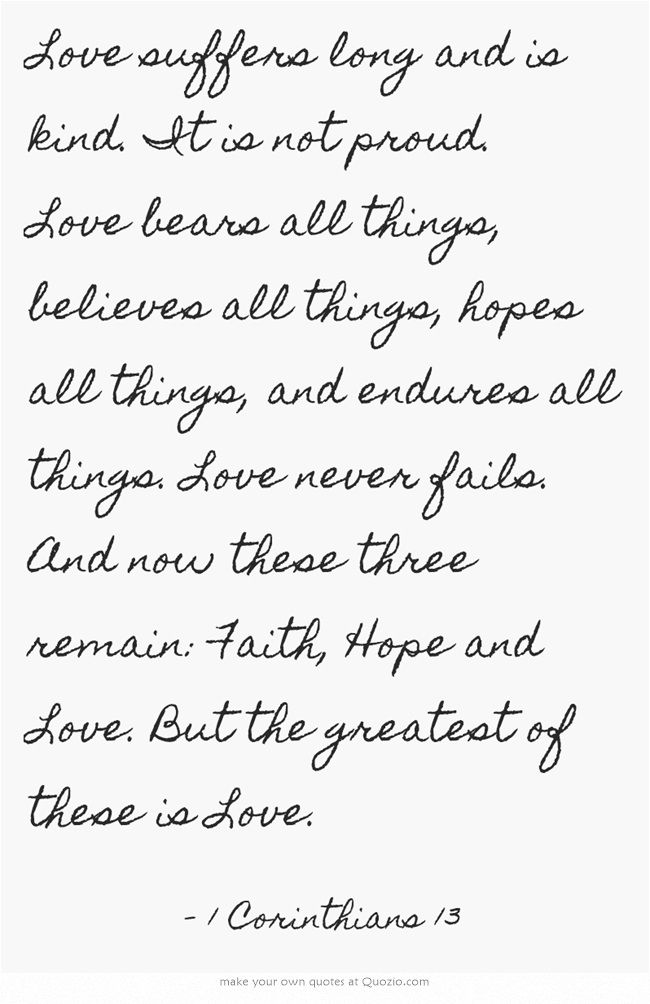 Love suffers long and is
kind. It is not proud.
Love bears all things,
believes all things, hopes
all things, and endures all
things. Love never fails.
And now these three
remain: Faith, Hope and
Love. But the greatest of
these is Love.
- 1 Corinthians 13
make your own quotes at Quozio.com